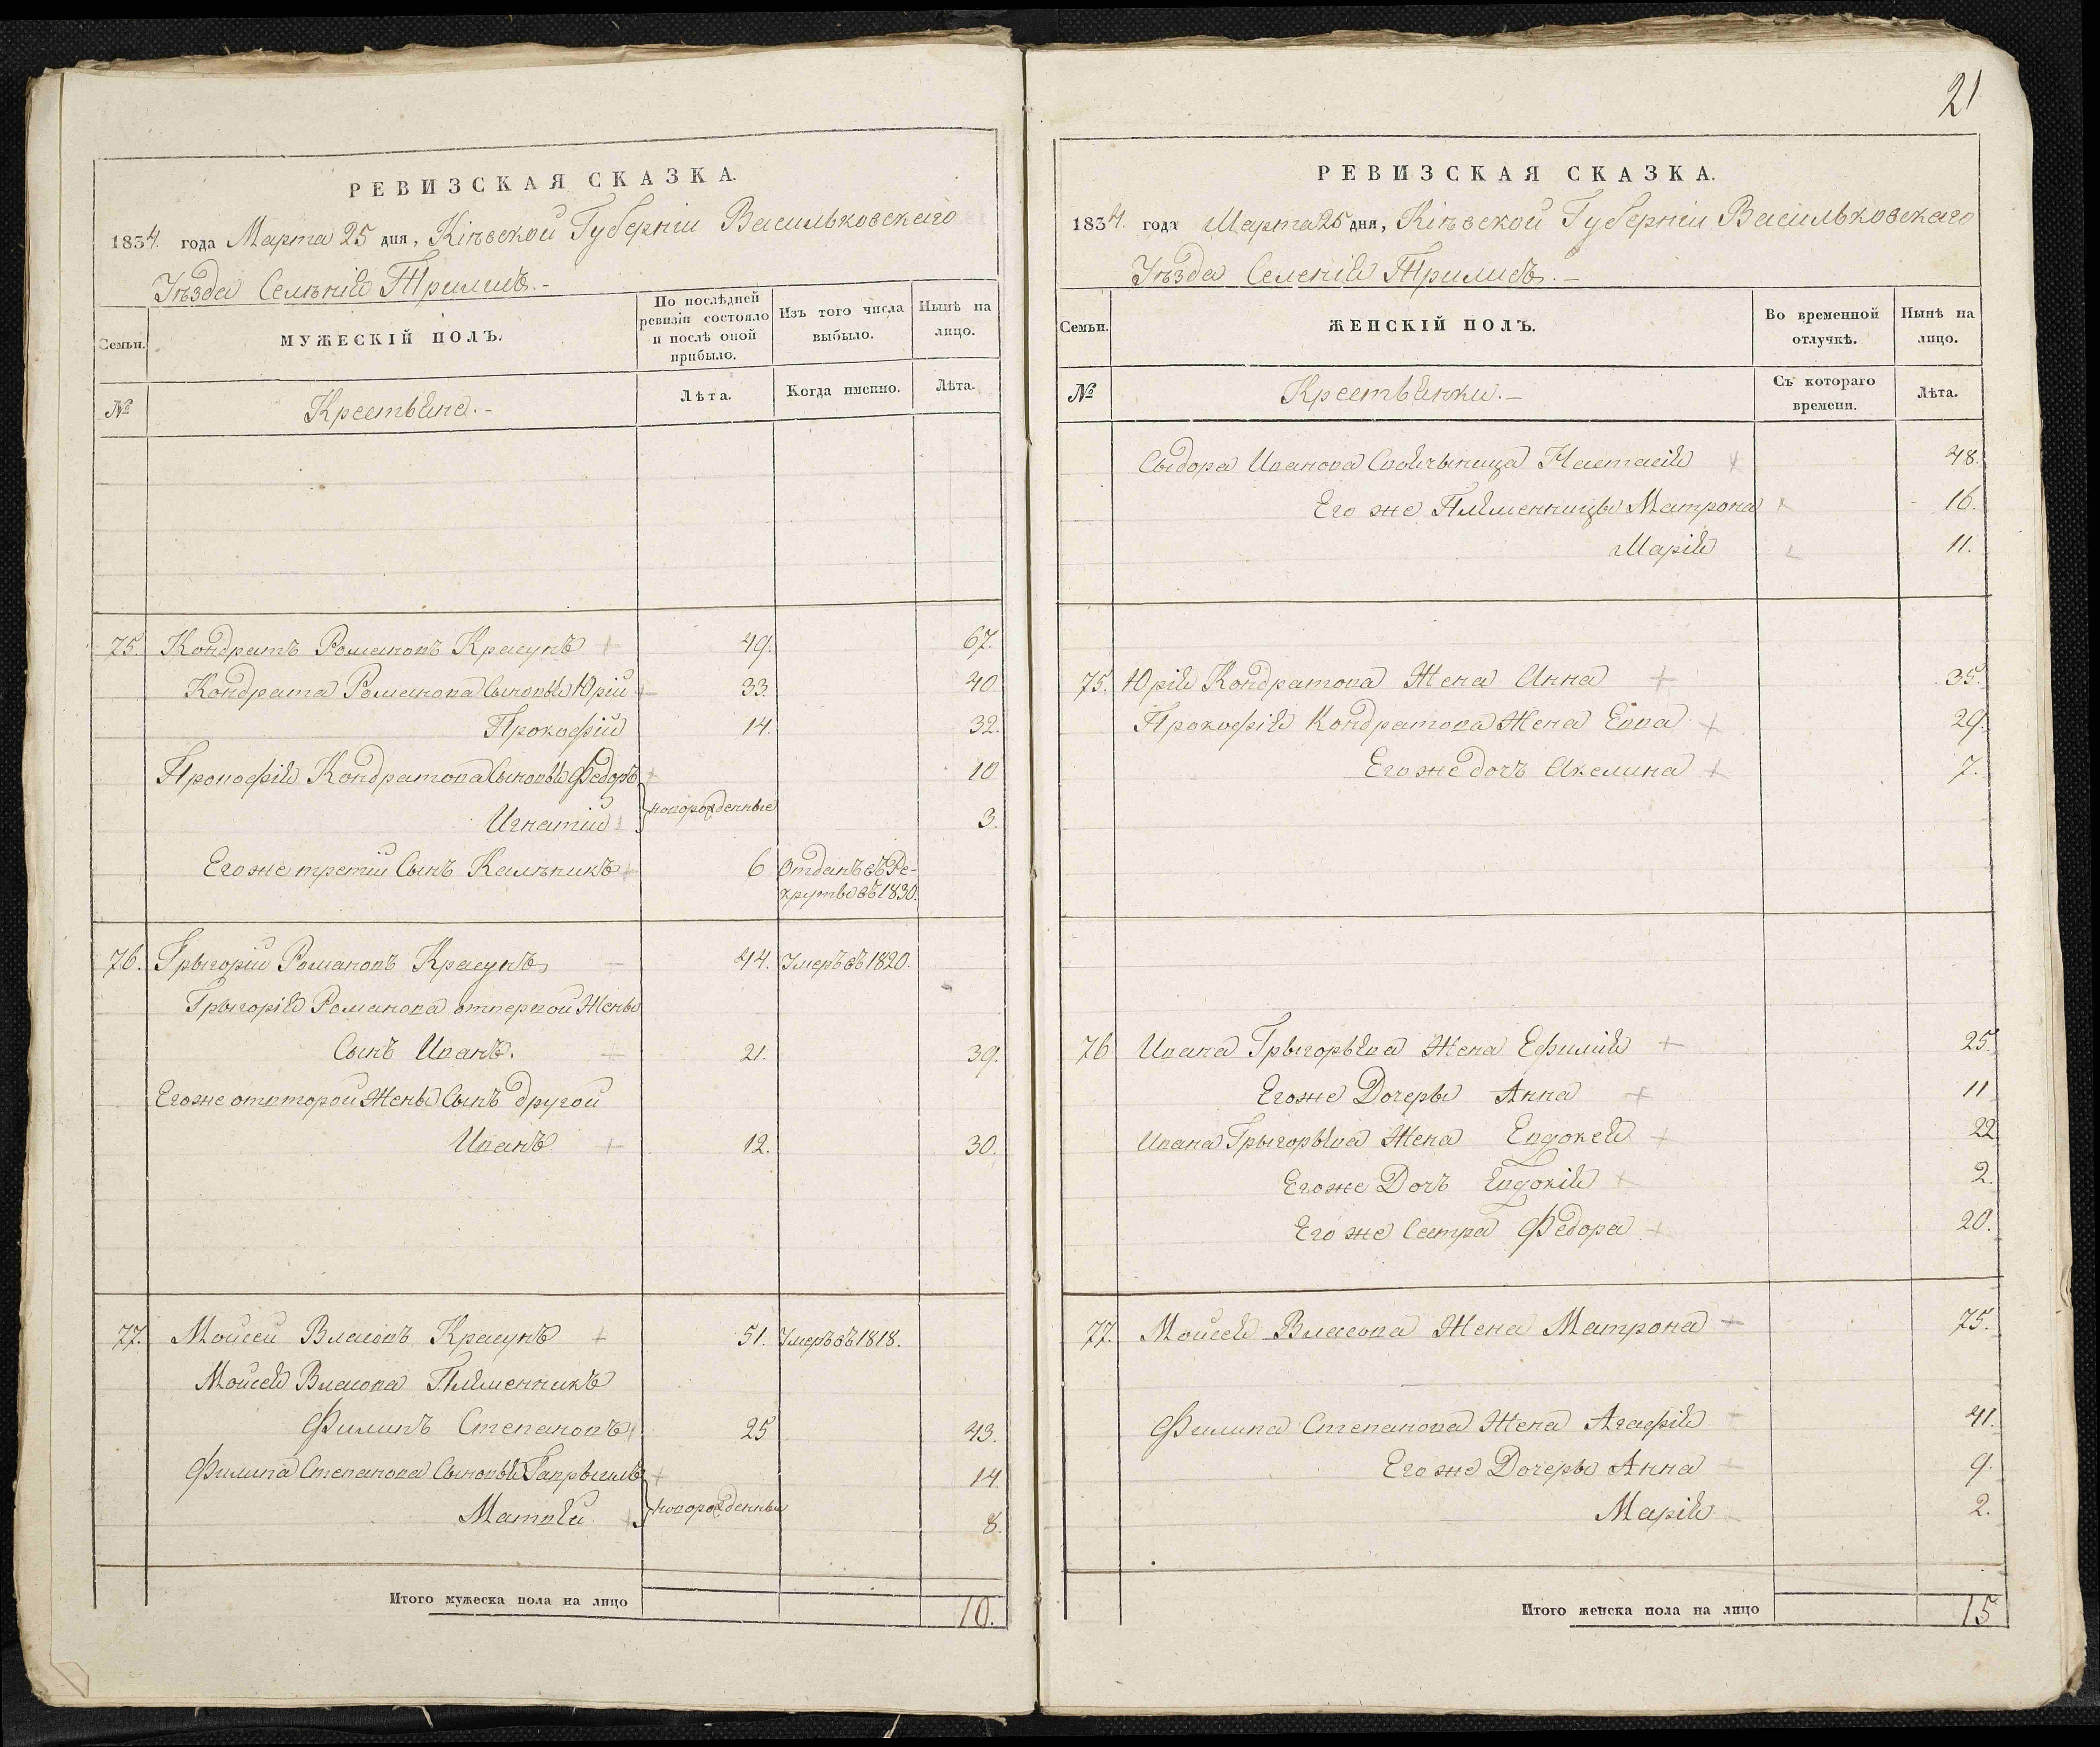 РЕВИЗСКАЯ СКАЗКА.
1834. года Марта 25 дня, Кіевской Губерніи Васильковскаго
Уѣзда Селѣнія Трилисъ.-
Семьи.
МУЖЕСКІЙ ПОЛЪ.
По послѣдней ревизіи состояло и послѣ оной прибыло.
Изъ того числа выбыло.
Нынѣ на лицо.
№
Крестьяне.-
Лѣта.
Когда именно.
Лѣта.
75. Кондратъ Романовъ Красунъ 49. 67.
Кондрата Романова Сыновья Юрій 33. 40
Прокофій 14. 32.
Прокофія Кондратова Сыновья Федоръ 10
новорожденные
Игнатій 3.
Его же третій Сынъ Калѣникъ 6 Отданъ въ Ре-
круты въ 1830.
76. Грыгорій Романовъ Красунъ 44. Умеръ въ 1820.
Грыгорія Романова отпервой Жены
Сынъ Иванъ. 21. 39.
Его же отвторой Жены Сынъ другой
Иванъ 12. 30.
77. Мойсей Власовъ Красунъ 51. Умеръ въ 1818.
Мойсея Власова Племенникъ
Филипъ Степановъ 25 43.
Филипа Степанова Сыновья Гаврыилъ 14.
новорожденные
Матвѣй 8.
Итого мужеска пола на лицо 10.
21
РЕВИЗСКАЯ СКАЗКА.
1834. года Марта 25 дня, Кіевской Губерніи Васильковскаго
Уѣзда Селенія Трилисъ.-
Семьи.
ЖЕНСКІЙ ПОЛЪ.
Во временной отлучкѣ.
Нынѣ на лицо.
№
Крестьянки.-
Съ котораго времени.
Лѣта.
Сыдора Иванова Своячыница Настасія 48.
Его же Племенницы Матрона 16.
Марія 11.
75. Юрія Кондратова Жена Анна 35.
Прокофія Кондратова Жена Евва 29.
Его же дочъ Акелина 7.
76 Ивана Грыгорьева Жена Ефимія 25.
Его же Дочеры Анна 11
Ивана Грыгорьева Жена Евдокея 22
Его же Дочъ Евдокія 2.
Его же Сестра Федора 20.
77. Мойсея Власова Жена Матрона 75.
Филипа Степанова Жена Агафія 41.
Его же Дочеры Анна 9.
Марія 2.
Итого женска пола на лицо 15